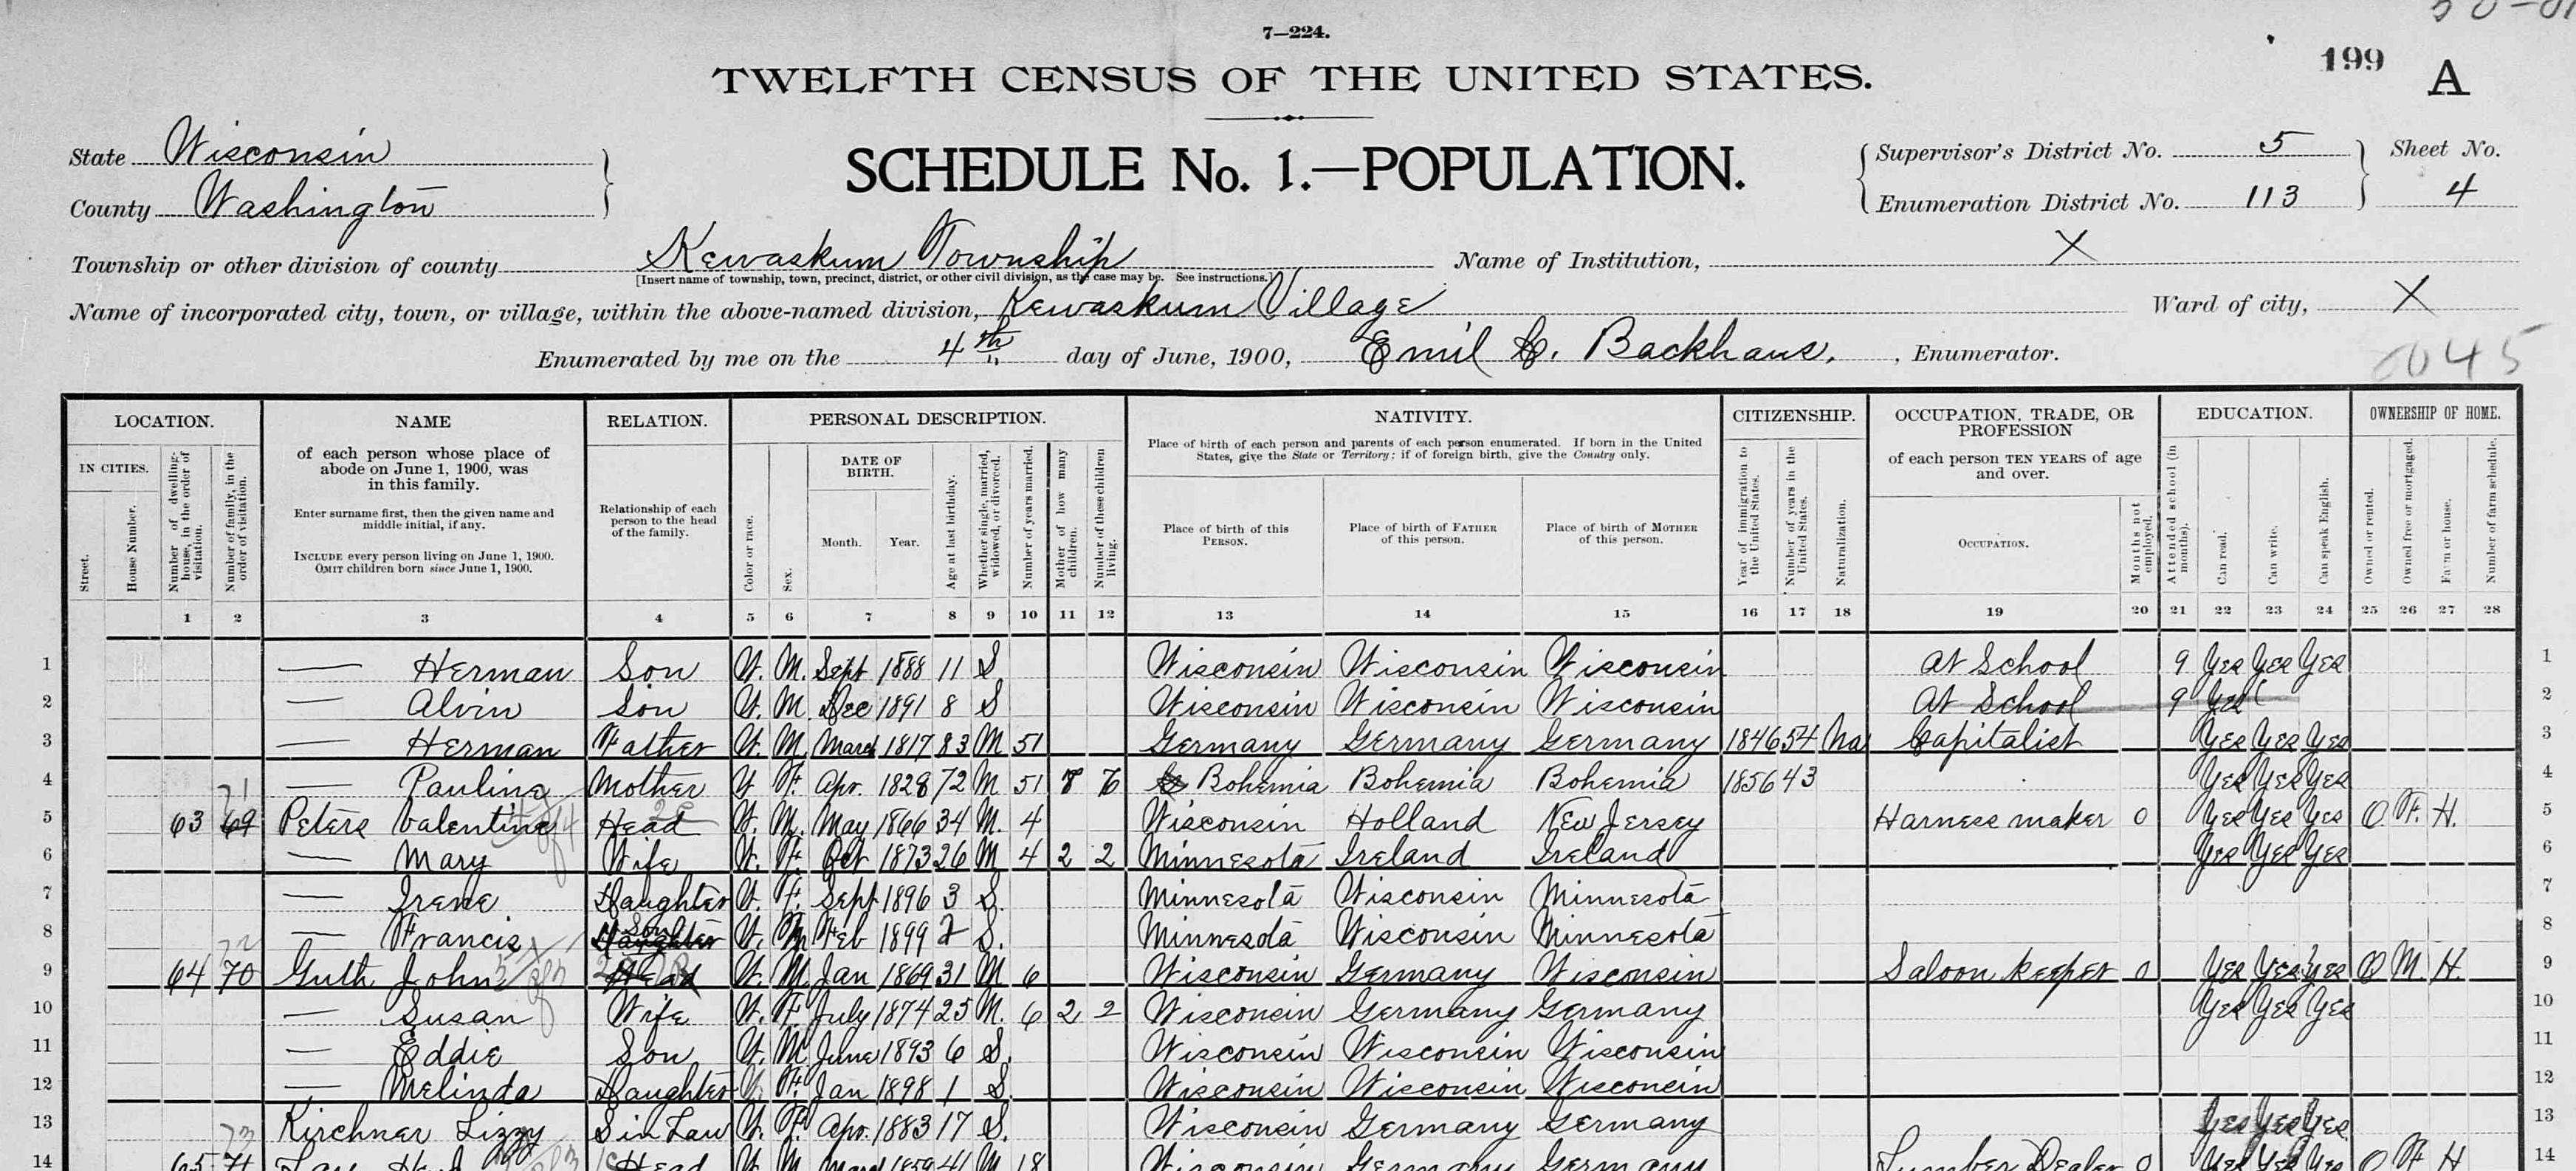 7—224.
TWELFTH CENSUS OF THE UNITED STATES.
199 A
State Wisconsin
County Washington
SCHEDULE No. 1.—POPULATION.
Supervisor's District No. 5 Sheet No.
Enumeration District No. 113 4
Township or other division of county Kewaskum Township Name of Institution, X
[Insert name of township, town, precinct, district, or other civil division, as the case may be. See instructions.]
Name of incorporated city, town, or village, within the above-named division, Kewaskum Village Ward of city, X
Enumerated by me on the 4th day of June, 1900, Emil C. Backhaus, , Enumerator.
0045
LOCATION. NAME RELATION. PERSONAL DESCRIPTION. NATIVITY. CITIZENSHIP. OCCUPATION, TRADE, OR PROFESSION EDUCATION. OWNERSHIP OF HOME.
IN CITIES.
Street.
House Number.
Number of dwelling-house, in the order of visitation.
Number of family, in the order of visitation.
of each person whose place of
abode on June 1, 1900, was
in this family.
Enter surname first, then the given name and
middle initial, if any.
INCLUDE every person living on June 1, 1900.
OMIT children born since June 1, 1900.
Relationship of each
person to the head
of the family.
Color or race.
Sex.
DATE OF
BIRTH.
Month. Year.
Age at last birthday.
Whether single, married, widowed, or divorced.
Number of years married.
Mother of how many children.
Number of these children living.
Place of birth of each person and parents of each person enumerated. If born in the United
States, give the State or Territory; if of foreign birth, give the Country only.
Place of birth of this
PERSON.
Place of birth of FATHER
of this person.
Place of birth of MOTHER
of this person.
Year of immigration to the United States.
Number of years in the United States.
Naturalization.
of each person TEN YEARS of age
and over.
OCCUPATION.
Months not employed.
Attended school (in months).
Can read.
Can write.
Can speak English.
Owned or rented.
Owned free or mortgaged.
Farm or house.
Number of farm schedule.
1 2 3 4 5 6 7 8 9 10 11 12 13 14 15 16 17 18 19 20 21 22 23 24 25 26 27 28
1 — Herman Son W. M. Sept 1888 11 S Wisconsin Wisconsin Wisconsin At School 9 Yes Yes Yes 1
2 — Alvin Son W. M Dec 1891 8 S Wisconsin Wisconsin Wisconsin At School 9 Yes 2
3 — Herman Father W. M. March 1817 83 M 51 Germany Germany Germany 1846 54 Na Capitalist Yes Yes Yes 3
4 — Pauline Mother W F. Apr. 1828 72 M. 51 6 Bohemia Bohemia Bohemia 1856 43 Yes Yes Yes 4
5 63 71 69 Peters Valentine Head W. M. May 1866 34 M. 4 Wisconsin Holland New Jersey Harness maker 0 Yes Yes Yes O. F. H. 5
6 — Mary Wife W. F. Oct 1873 26 M 4 2 2 Minnesota Ireland Ireland Yes Yes Yes 6
7 — Irene Daughter W. F. Sept 1896 3 S. Minnesota Wisconsin Minnesota 7
8 — Francis Son Daughter W. M Feb 1899 2 S. Minnesota Wisconsin Minnesota 8
9 64 72 70 Guth John Head W. M Jan 1869 31 M 6 Wisconsin Germany Wisconsin Saloon keeper 0 Yes Yes Yes O M. H. 9
10 — Susan Wife W. F July 1874 25 M. 6 2 2 Wisconsin Germany Germany Yes Yes Yes 10
11 — Eddie Son W. M June 1893 6 S. Wisconsin Wisconsin Wisconsin 11
12 — Melinda Daughter W. F. Jan 1898 1 S. Wisconsin Wisconsin Wisconsin 12
13 Kirchner Lizzy S in Law W. F. Apr. 1883 17 S. Wisconsin Germany Germany Yes Yes Yes 13
14 65 73 71 Head W. M March 1859 41 M 18 Wisconsin Germany Germany Lumber Dealer 0 Yes Yes Yes O F H 14